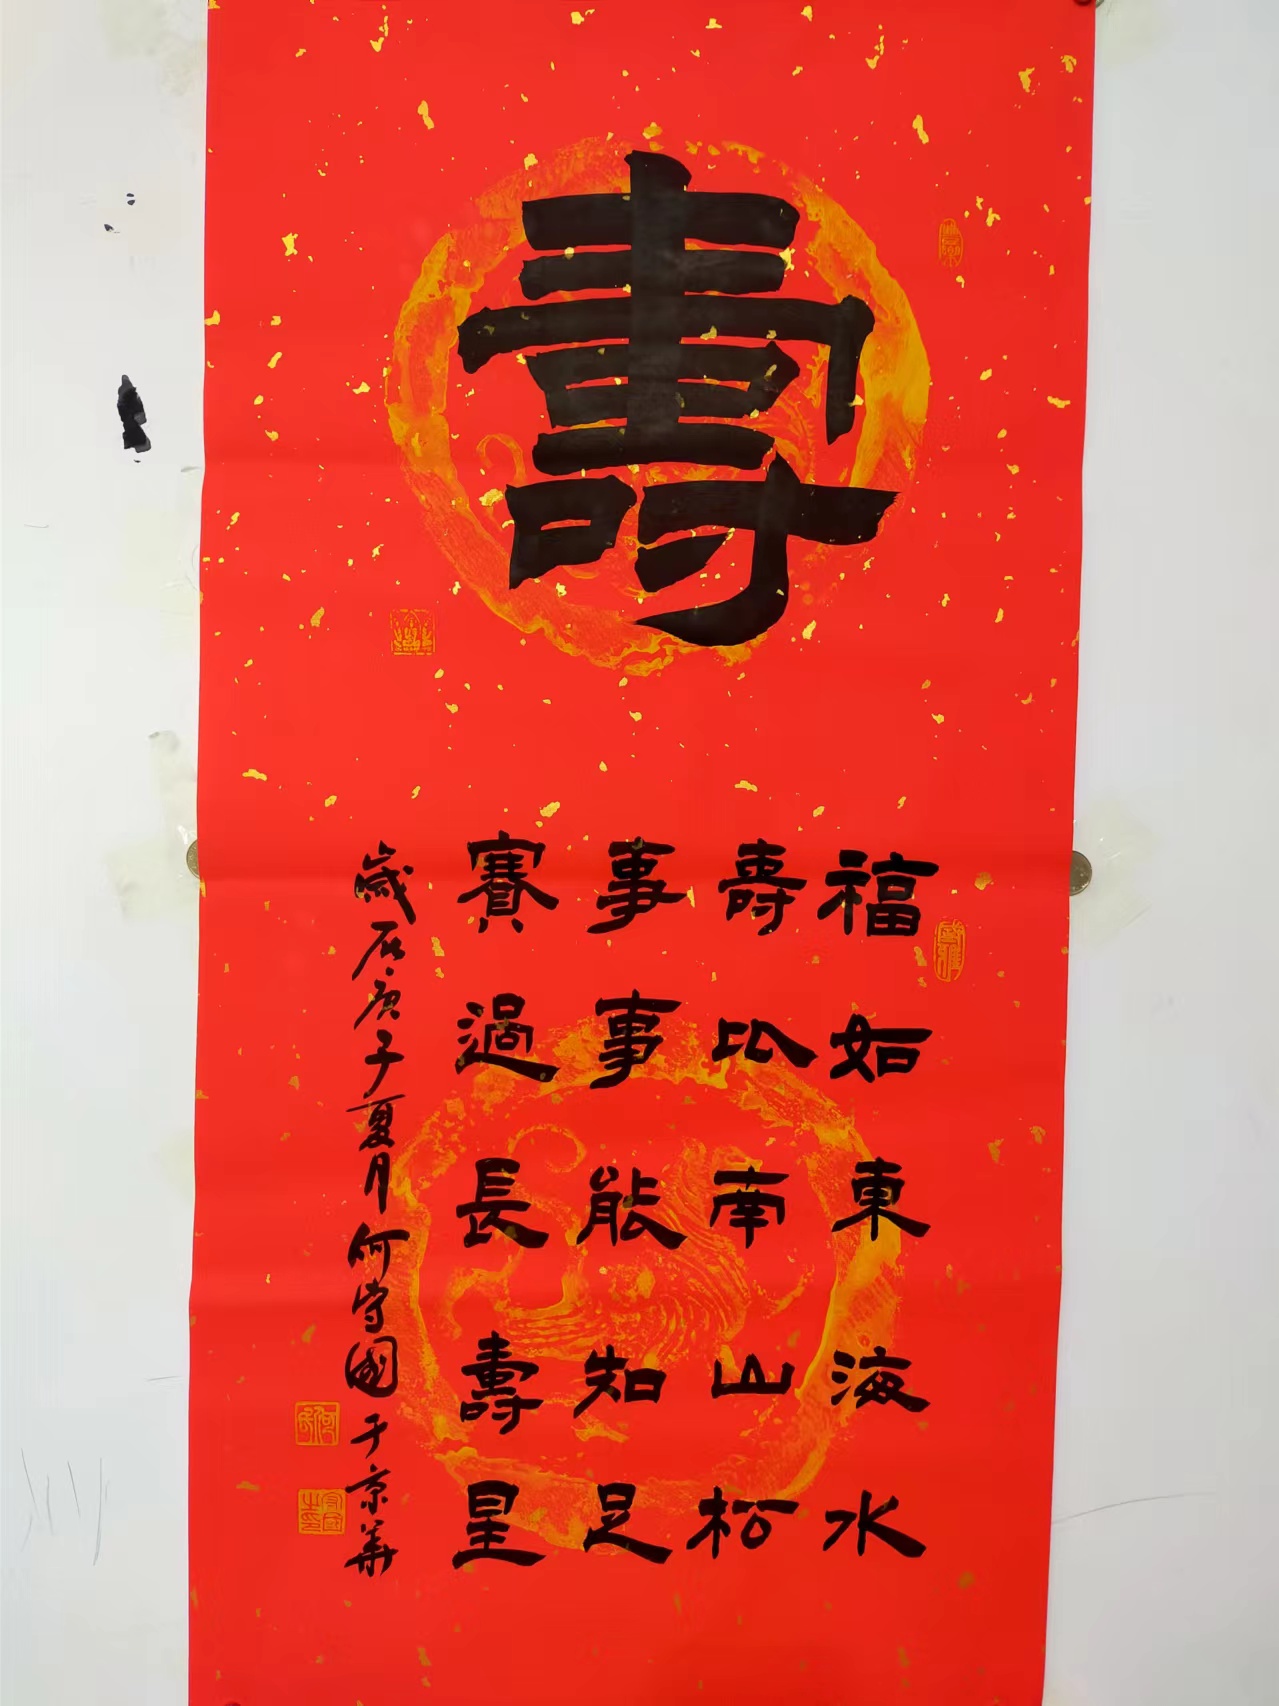 壽
福如東海水
壽比南山松
事事能知足
賽過長壽星
歲居庚子夏月何守國于京華